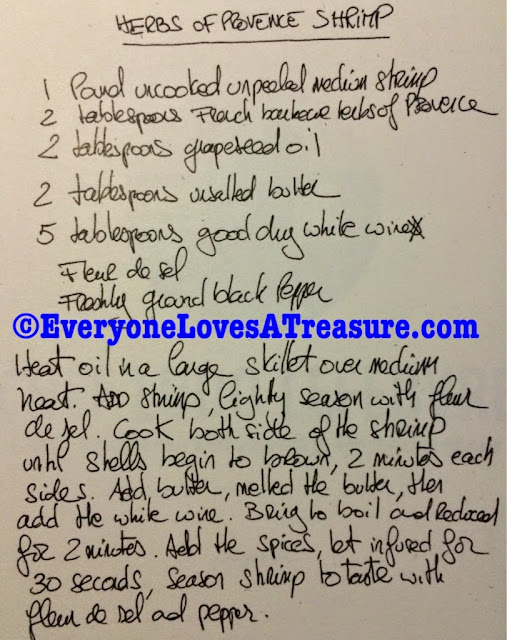 HERBS OF PROVENCE SHRIMP
1 Pound uncooked unpeeled medium shrimp
2 tablespoons French barbecue herbs of Provence
2 tablespoons grapeseed oil
2 tablespoons unsalted butter
5 tablespoons good dry white wine
Fleur de sel
Freshly ground black Pepper
©EveryoneLovesATreasure.com
Heat oil in a large skillet over medium
heat. ADD shrimp, lightly season with fleur
de sel. Cook both side of the shrimp
until shells begin to brown, 2 minutes each
sides. Add butter, melted the butter, then
add the white wine. Bring to boil and Reduced
for 2 minutes. Add the spices, let infused for
30 seconds, season shrimp to taste with
fleur de sel and pepper.